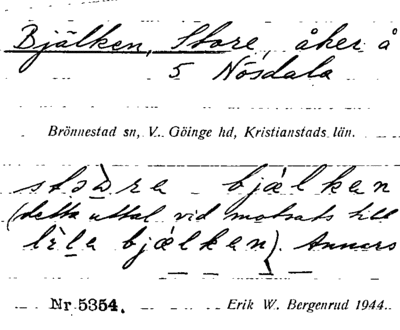 Bjälken, Store, åker å
5 Nösdala
Brönnestad sn, V. Göinge hd, Kristianstads län.
bjælken
(detta uttal vid motsats till
bjælken). Annars
Nr 5354. Erik W. Bergenrud 1944.